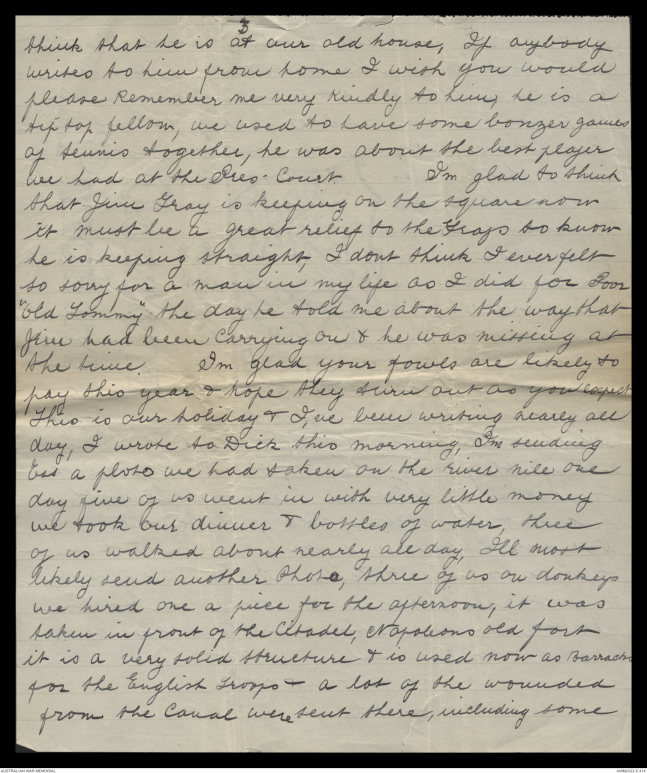 3
think that he is at our old house, If anybody
writes to him from home I wish you would
please Remember me very kindly to him, he is a
tip top fellow, we used to have some bonzer games
of tennis together, he was about the best player
we had at the Pres. Court. I'm glad to think
that Jim Gray is keeping on the square now
it must be a great relief to the Grays to know
he is keeping straight, I dont think I ever felt
so sorry for a man in my life as I did for Poor
"old Tommy" the day he told me about the way that
Jim had been Carrying on & he was missing at
the time. I'm glad your fowls are likely to
pay this year & hope they turn out as you expect
This is our holiday & I,ve been writing nearly all
day, I wrote to Dick this morning, I'm sending
Ess a photo we had taken on the river nile one
day five of us went in with very little money
we took our dinner & bottles of water, three
of us walked about nearly all day, I'll most
likely send another Photo, three of us on donkeys
we hired one a piece for the afternoon, it was
taken in front of the Citadel, Napoleons old fort
it is a very solid structure & is used now as Barracks
for the English Troops & a lot of the wounded
from the Canal were sent there, including some
AUSTRALIAN WAR MEMORIAL